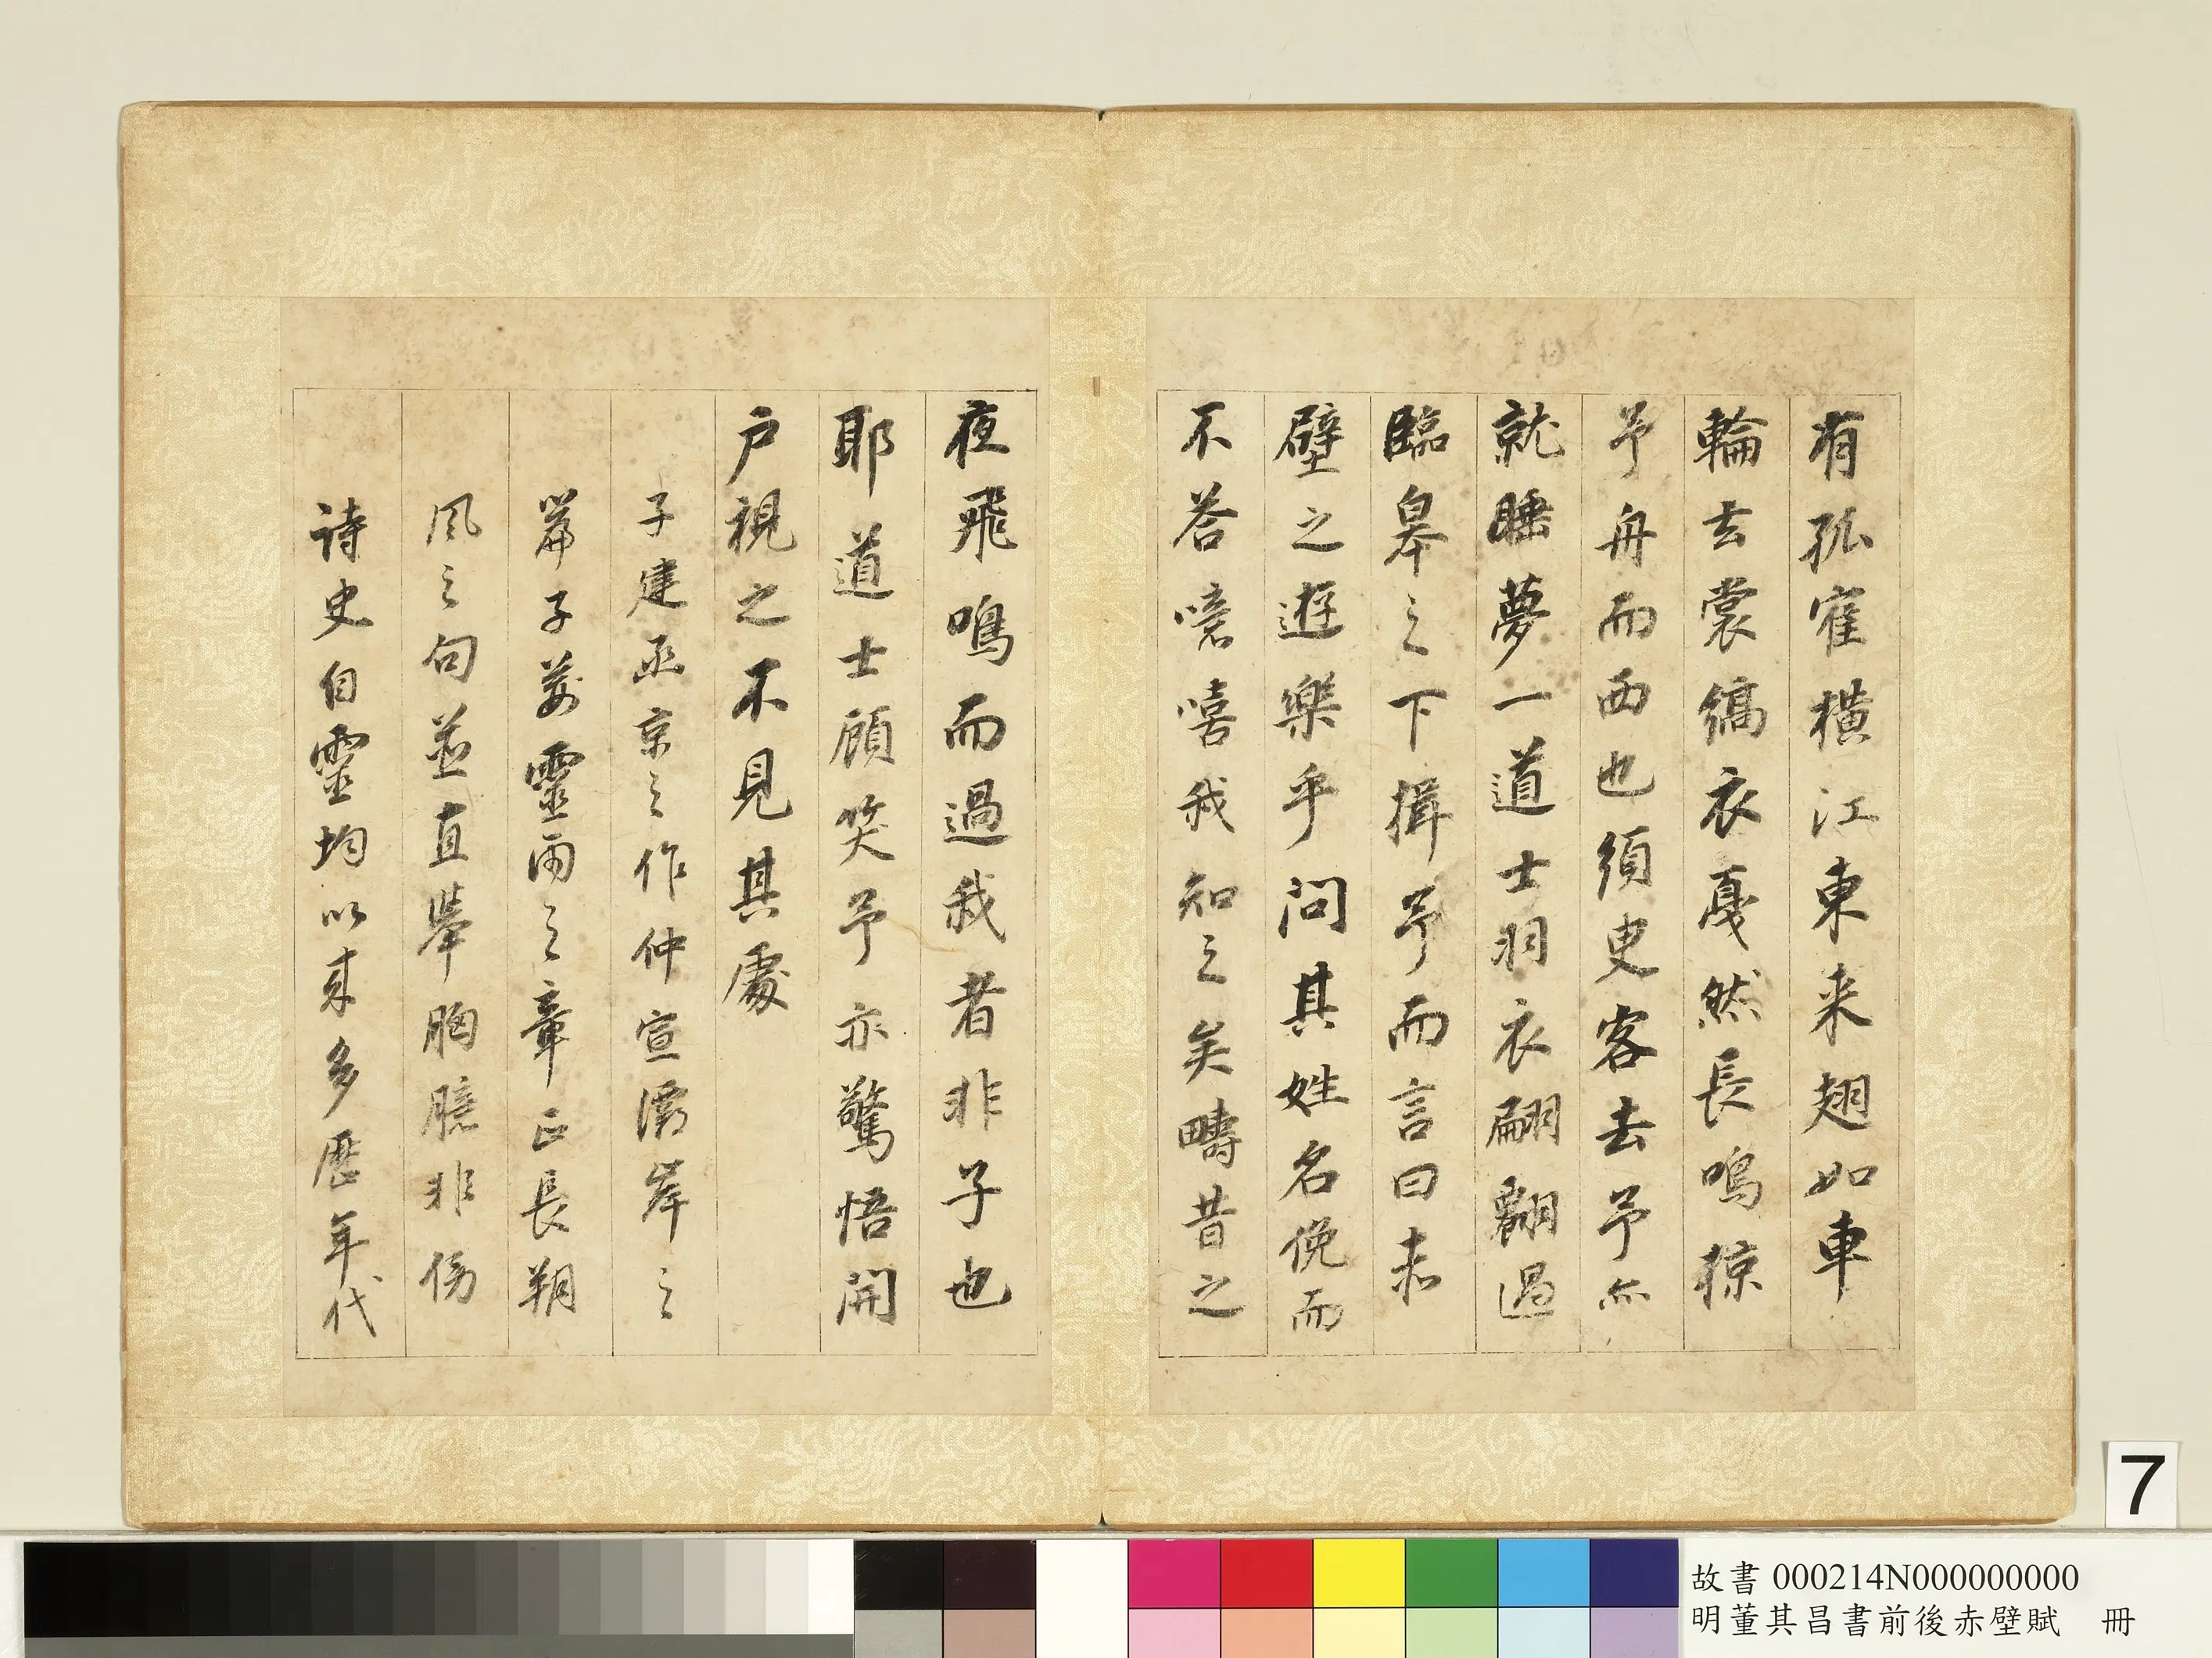 有孤寉橫江東来翅如車
輪玄裳縞衣戛然長鳴掠
予舟而西也須臾客去予亦
就睡夢一道士羽衣翩翻過
臨皋之下揖予而言曰赤
壁之遊樂乎問其姓名俛而
不荅噫嘻我知之矣疇昔之
夜飛鳴而過我者非子也
耶道士顧笑予亦驚悟開
戶視之不見其處
子建函京之作仲宣灞岸之
篇子荆零雨之章正長朔
風之句並直舉胸臆非傍
詩史自靈均以来多歷年代
7
故書 000214N000000000
明董其昌書前後赤壁賦 冊